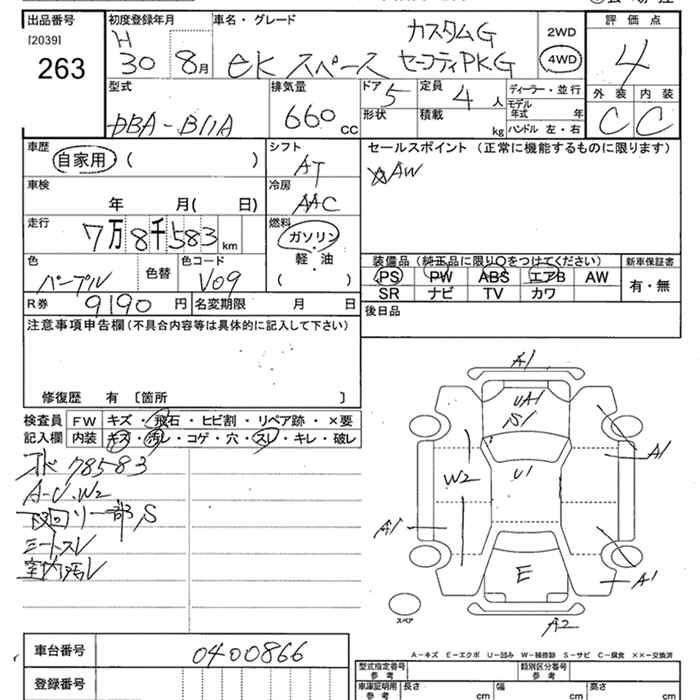 出品番号 初度登録年月 車名・グレード カスタムG 2WD 評価点
[2039] H
263 30 8月 eK スペース セーフティPKG 4WD 4
型式 排気量 ドア 5 定員 4人 ディーラー・並行 外装 内装
モデル年式 年
DBA-B11A 660 CC 形状 積載 kg ハンドル 左・右 C C
車歴 自家用 ( ) シフト AT セールスポイント (正常に機能するものに限ります)
☆AW
車検 年 月( 日) 冷房 AAC
走行 7万8千583km 燃料 ガソリン 軽・油 ( )
装備品 (純正品に限り○をつけてください) 新車保証書
色 パープル 色替 色コード V09 PS PW ABS エアB AW 有・無
SR ナビ TV カワ
R券 9190円 名変期限 月 日 後日品
注意事項申告欄(不具合内容等は具体的に記入して下さい)
修復歴 有 〔箇所 〕
検査員 FW キズ・飛石・ヒビ割・リペア跡・×要
記入欄 内装 キズ・汚レ・コゲ・穴・スレ・キレ・破レ
78583
A-U.W2
下回り一部S
シートスレ
室内汚レ
A1
UA1
S1
A1
W2 U1
A1
E A1
スペア A2
A-キズ E-エクボ U-凹み W-補修跡 S-サビ C-腐食 ××-交換済
車台番号 0400866
登録番号
型式指定番号 参考 類別区分番号 参考
車庫証明用 参考 長さ cm 幅 cm 高さ cm